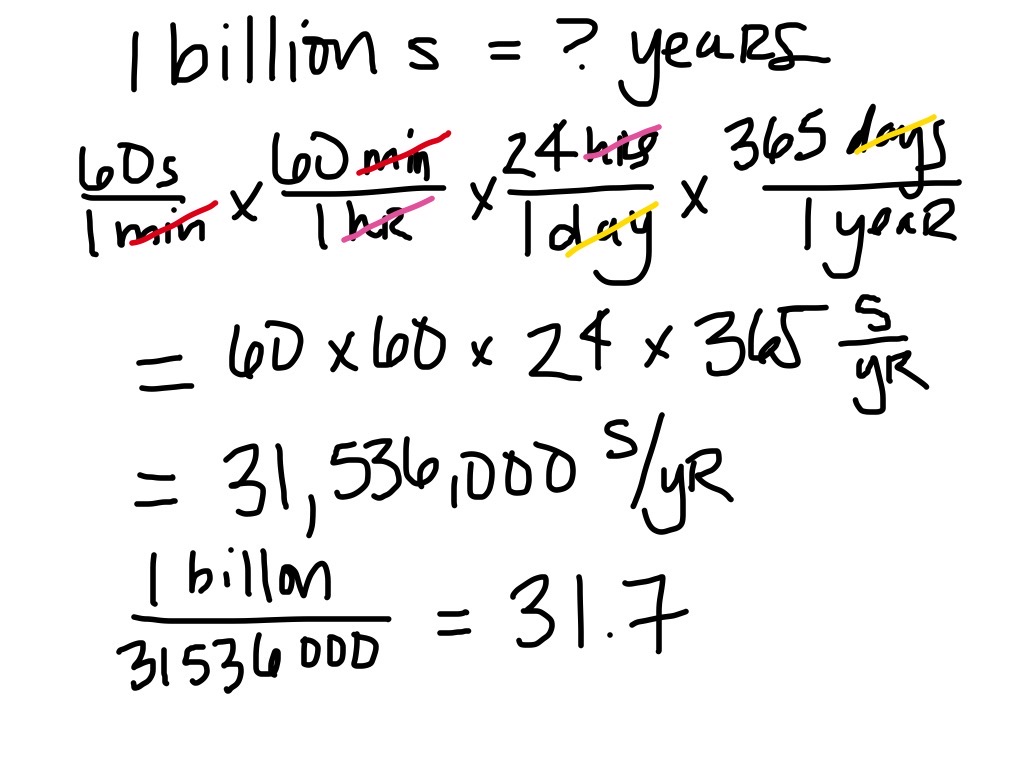 1 billion s = ? years
60s/1 min x 60 min/1 hr x 24 hrs/1 day x 365 days/1 year
= 60 x 60 x 24 x 365 s/yr
= 31,536,000 s/yr
1 billon/31536000 = 31.7